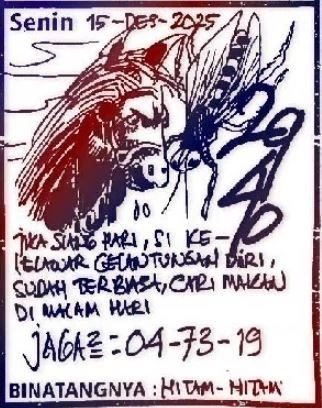 Senin 15-DES-2025
2940
JIKA SIANG HARI, SI KE-
LELAWAR GELANTUNGAN DIRI,
SUDAH TERBIASA, CARI MAKAN
DI MALAM HARI
JAGA2 = 04-73-19
BINATANGNYA : HITAM-HITAM